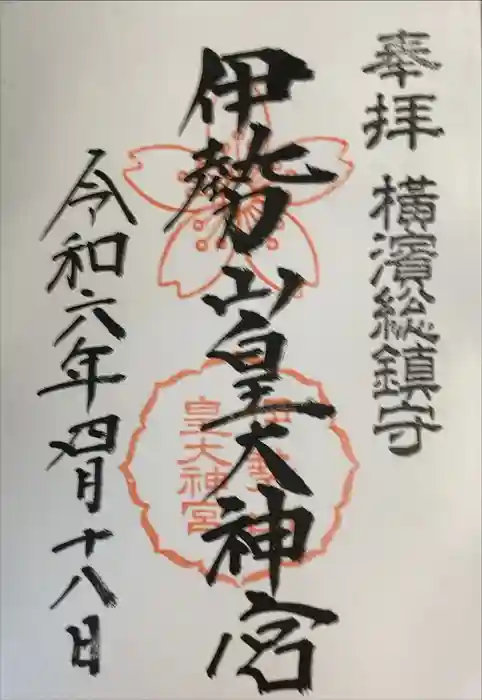 奉拝 橫濱総鎮守
伊勢山皇大神宮
伊勢山
皇大神宮
令和六年四月十八日